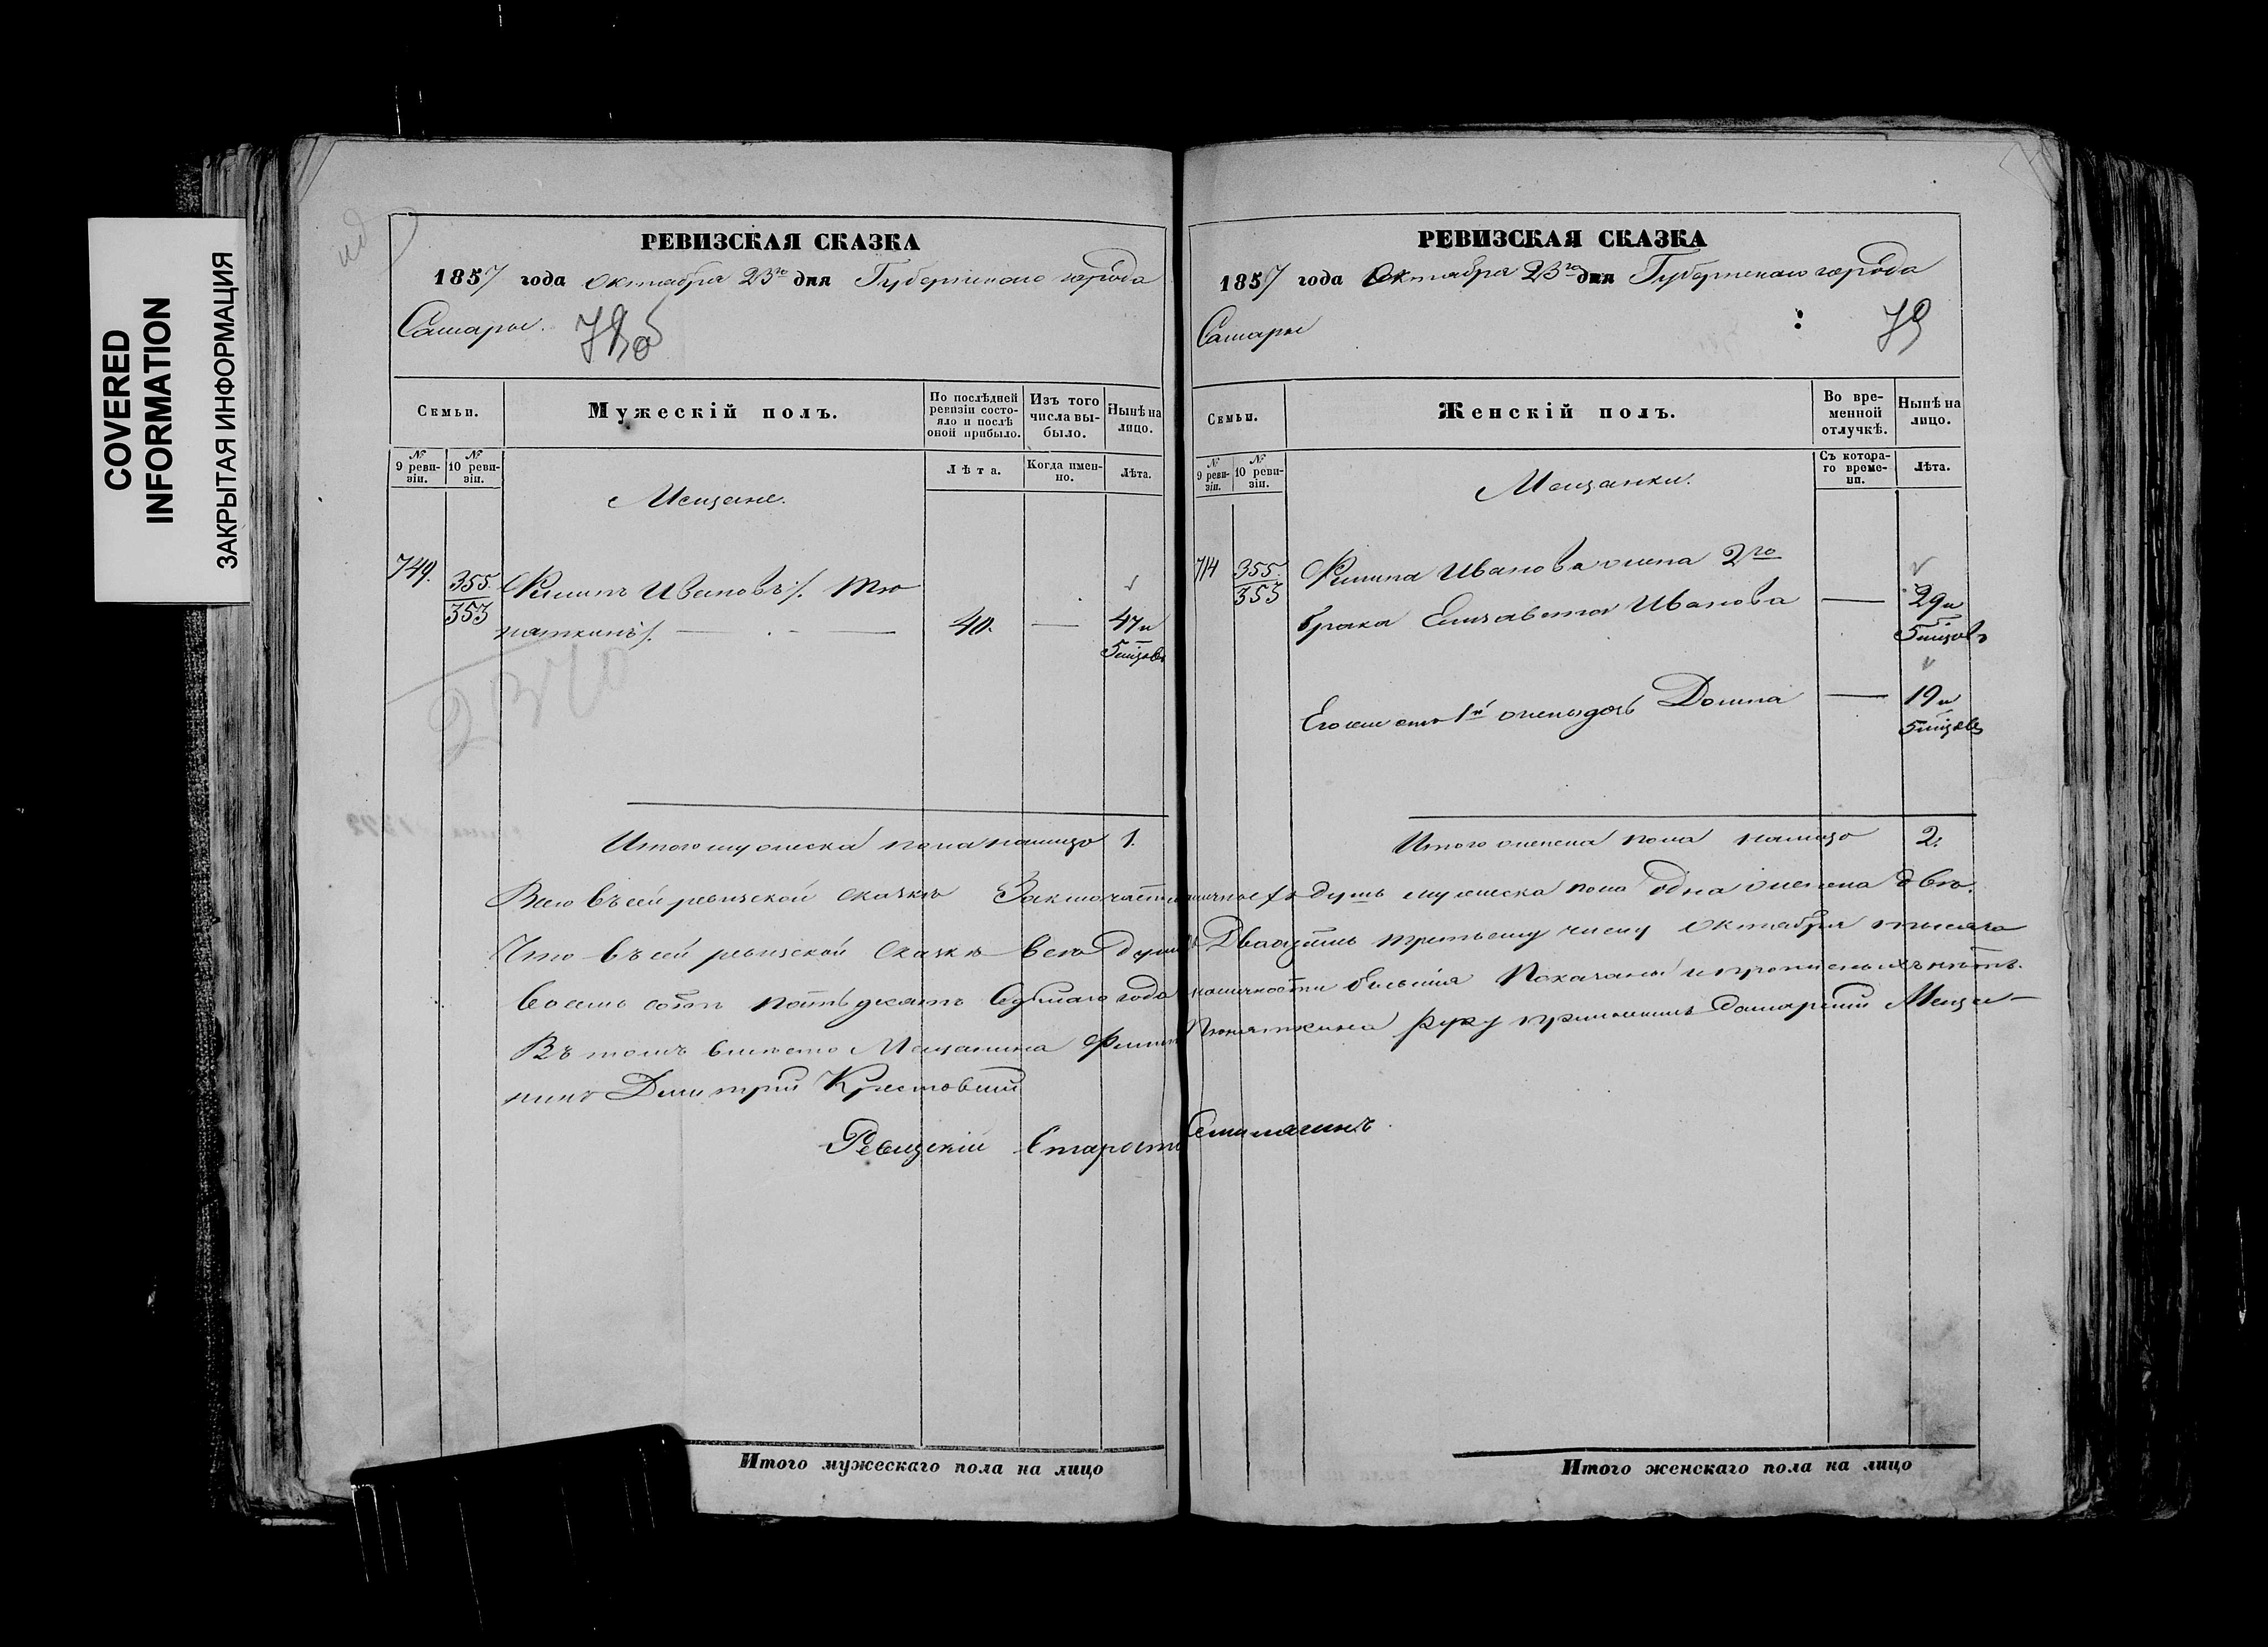 COVERED
INFORMATION
ЗАКРЫТАЯ ИНФОРМАЦИЯ
РЕВИЗСКАЯ СКАЗКА
1857 года Октября 23го дня Губернскаго города
Самары. 78об
Семьи.
Мужескій полъ.
По послѣдней ревизіи состояло и послѣ оной прибыло.
Изъ того числа выбыло.
Нынѣ на лицо.
№ 9 ревизіи.
№ 10 ревизіи.
Лѣта.
Когда именно.
Лѣта.
Мещане.
749. 355. Филипъ Ивановъ/. Тю
353 няткинъ/. — 40. — 47 и
5 мцовъ
Итого мужеска пола налицо 1.
РЕВИЗСКАЯ СКАЗКА
1857 года Октября 23го дня Губернскаго города
Самары 79
Семьи.
Женскій полъ.
Во временной отлучкѣ.
Нынѣ на лицо.
№ 9 ревизіи.
№ 10 ревизіи.
Съ котораго времени.
Лѣта.
Мещанки.
714 355. Филипа Иванова жена 2го
353 брака Елизавета Иванова — 29 и
5 мцовъ
Его же отъ 1й жены дочь Домна — 19 и
5 мцовъ
Итого женска пола налицо 2.
Всего въ сей ревизской сказкѣ Заключается наличныхъ душъ мужеска пола одна женска двѣ.
Что въ сей ревизской сказкѣ всѣ души Двадцать третьему числу октября тысяча
восемь сотъ пятьдесятъ седьмаго года наличности бывшія показаны и прописныхъ нѣтъ.
Въ томъ вмѣсто Мещанина Филипа Тюняткина руку приложилъ Самарскій Меща-
нинъ Дмитрій Крестовскій
Ревизскій Староста
Итого мужескаго пола на лицо
Итого женскаго пола на лицо